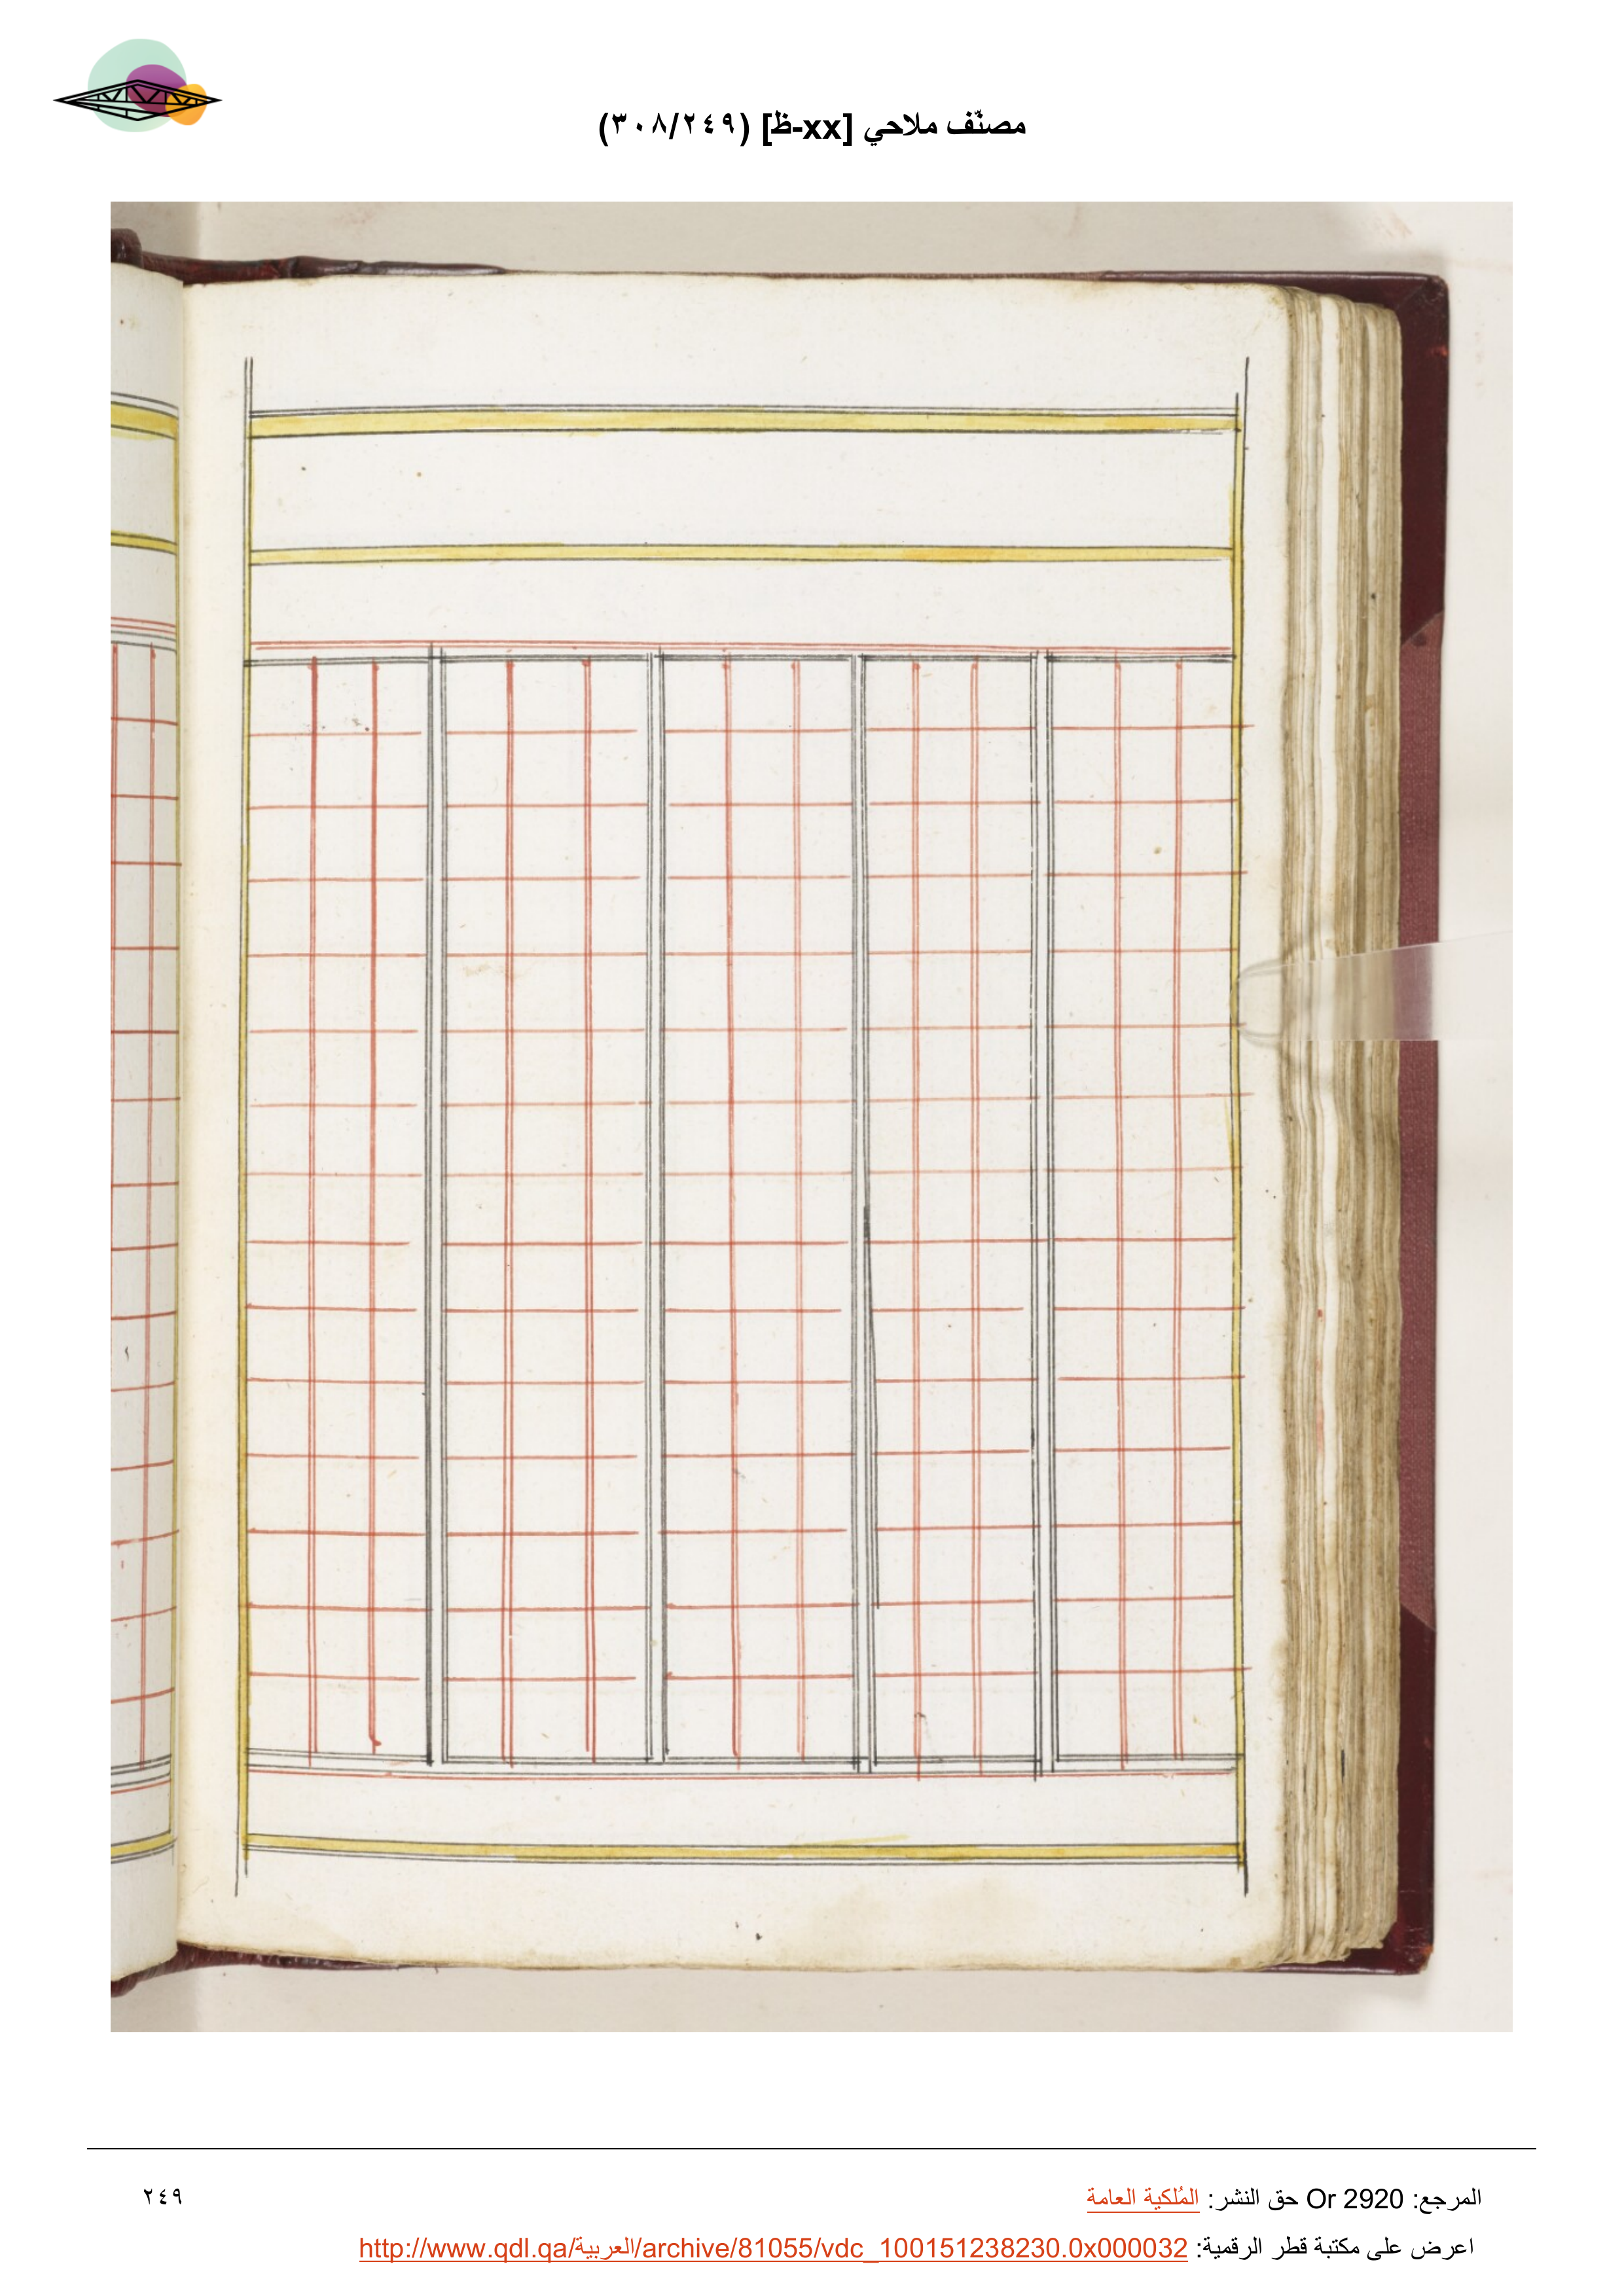 مصنّف ملاحي [xx-ظ] (٣٠٨/٢٤٩)
المرجع: Or 2920 حق النشر: المُلكية العامة
٢٤٩
اعرض على مكتبة قطر الرقمية: http://www.qdl.qa/العربية/archive/81055/vdc_100151238230.0x000032